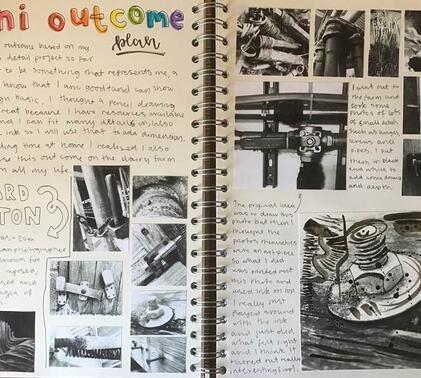 ni outcome
plan
outcome based on my
detail project so far
to be something that represents me, a
know that I am good and can show
basic, I thought a pencil drawing
great because I have resources available
and I can fit many details in, also
ink so I will use that to add dimension.
ding time at home I realized I also
use this out come on the dairy farm
all my life.
ARD
TON
photographer
known for
I went out to
the farm and
took some
photos of lots
of small details
such as hinges,
screws and
pipes, I put
them in black
and white to
add some drama
and depth.
The original idea
was to draw this
photo but then I
thought the
photos themselves
were an art piece
so what I did
was printed out
this photo and
used ink on top
I really just
played around
with the ink
and just did
what felt right
and I think it
turned out really
interesting/cool.